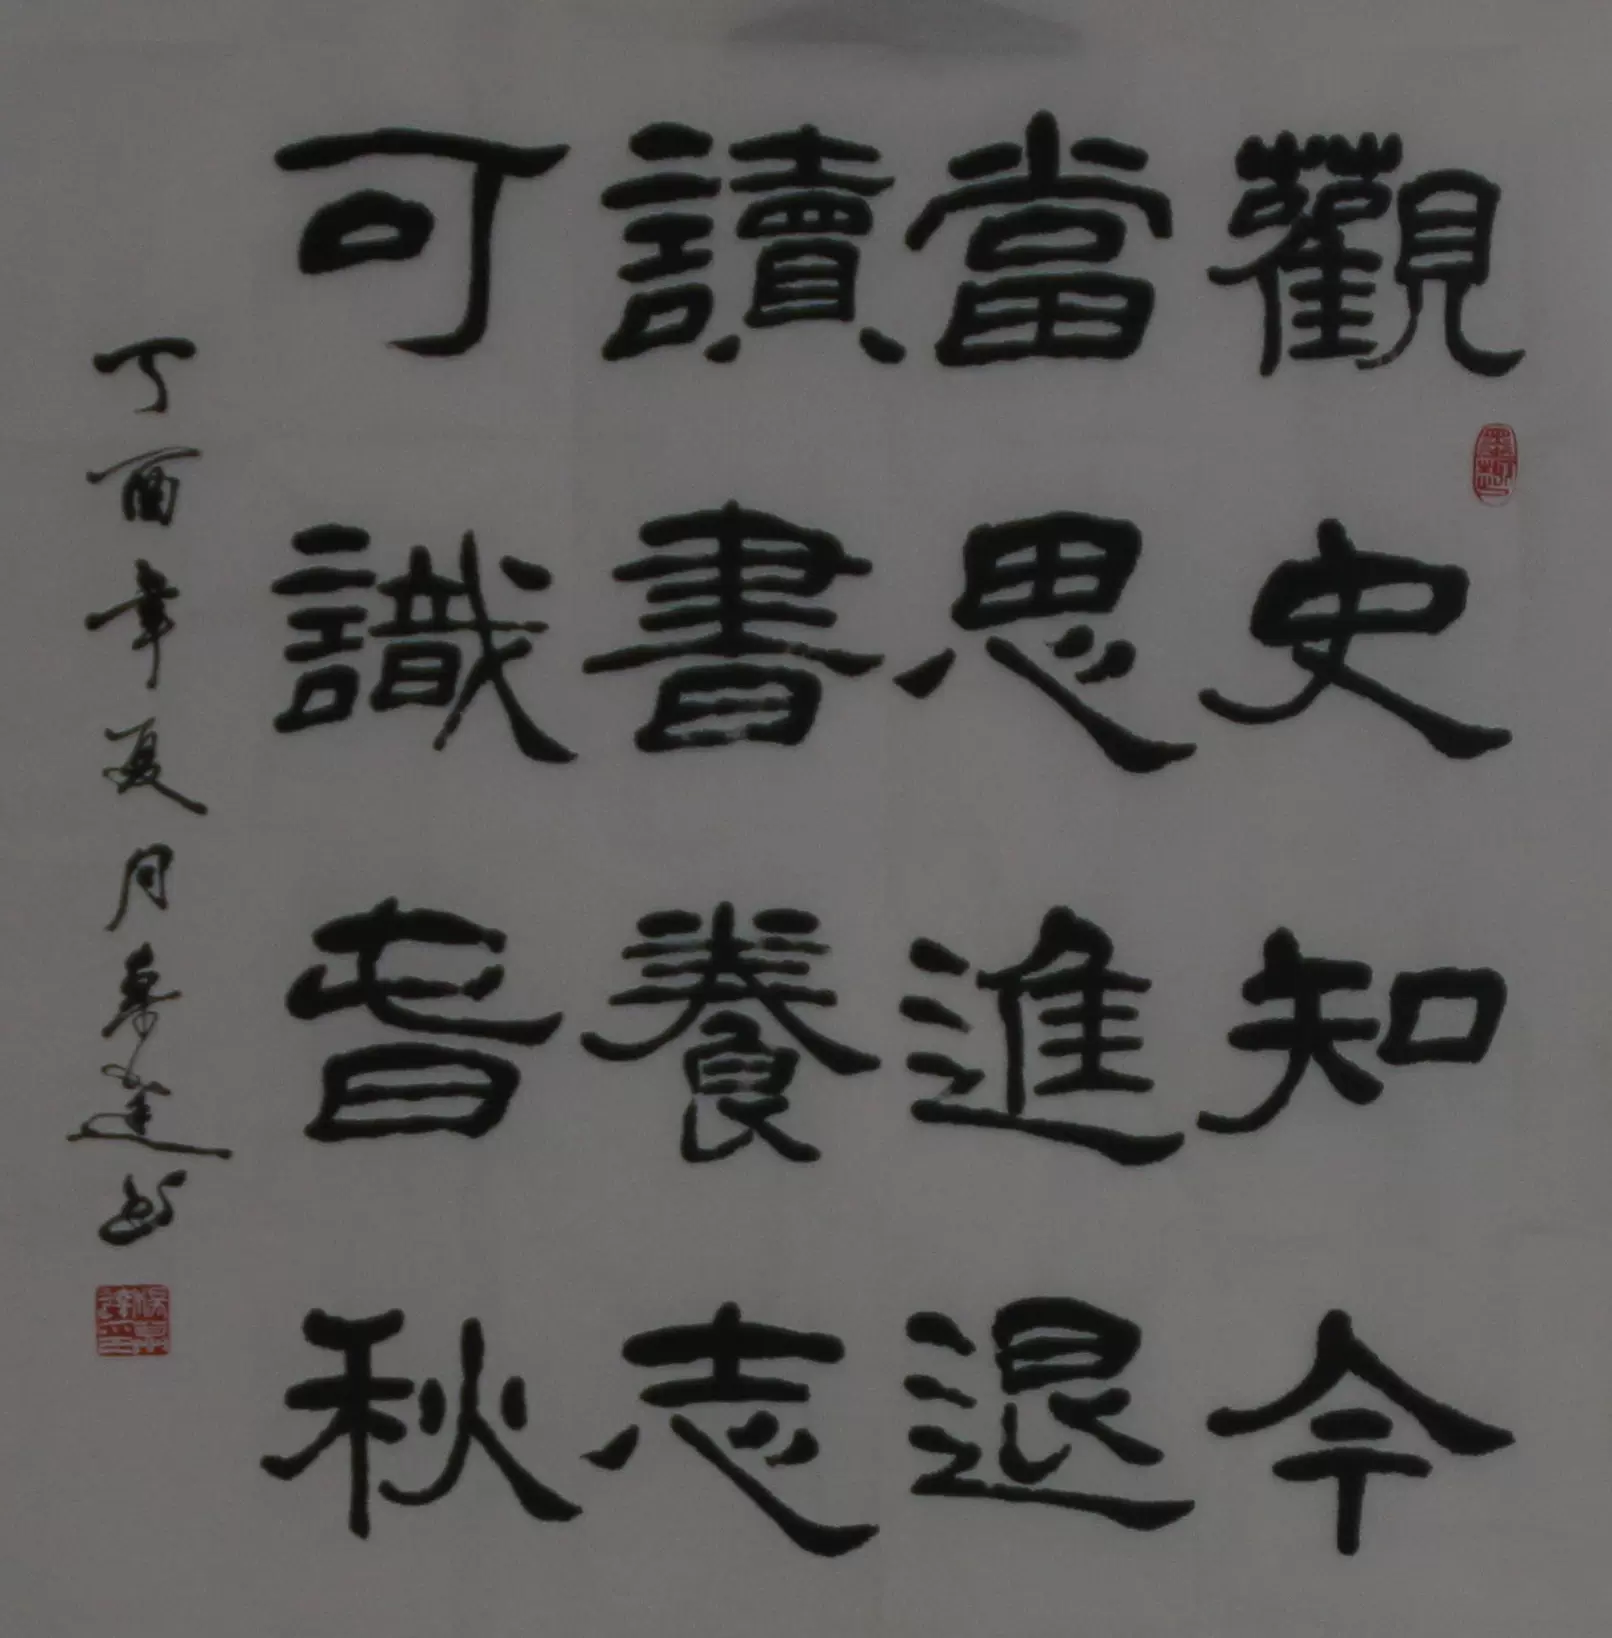 觀史知今
當思進退
讀書養志
可識旾秋
丁酉年夏月達书